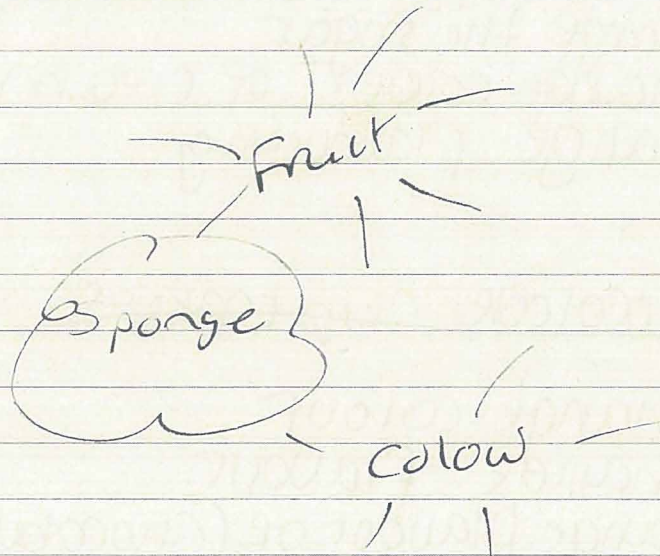 Fruit
Sponge
Colour